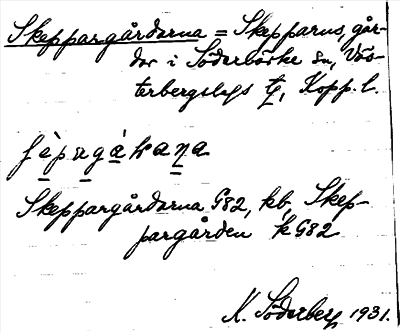 Skeppargårdarna = Skepparns, går-
dar i Söderbärke sn, Väs-
terbergslags tg, Kopp. l.
Skeppargårdarna G82, kb, Skep-
pargården k G82
K. Söderberg 1931.